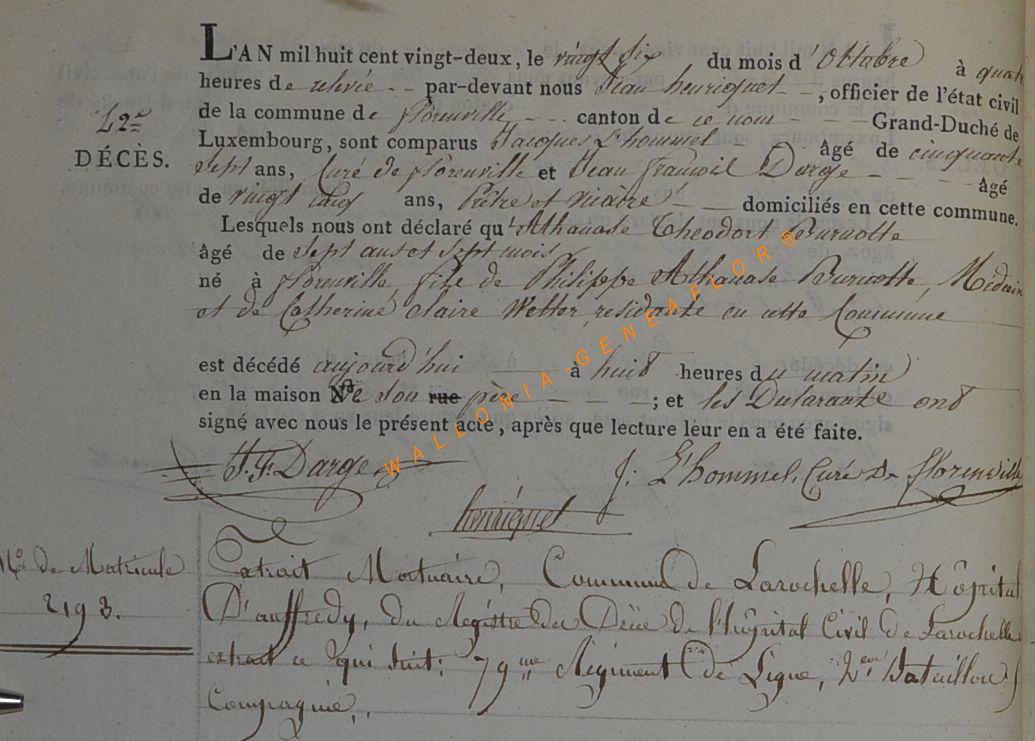 L'AN mil huit cent vingt-deux, le vingt six du mois d'Octobre à quatre
heures de relevée - - par-devant nous Jean henriquet -, officier de l'état civil
de la commune de florenville - - canton de ce nom - Grand-Duché de
Luxembourg, sont comparus Jacques L'hommel - âgé de cinquante
42me
DÉCÈS.
sept ans, Curé de florenville et Jean françois Darge - - - âgé
de vingt cinq ans, Prêtre et vicaire - - domiciliés en cette commune.
Lesquels nous ont déclaré qu'Athanase Theodort Burnotte
âgé de sept ans et sept mois
né à florenville, fils de Philippe Athanase Burnotte, Médecin
et de Catherine Claire Wetter, residante en cette Commune
est décédé aujourd'hui - à huit heures du matin
en la maison de son rue père - - - ; et les Déclarants ont
signé avec nous le présent acte, après que lecture leur en a été faite.
J. F. Darge
J. L'hommel, Curé De florenville
henriquet
No de Matricule
2193.
Extrait Mortuaire, Commune de Larochelle, Hôpital
D'auffredy, du Registre des Décès de l'hôpital Civil de Larochelle
extrait ce qui suit: 79me Régiment de Ligne, 2eme Bataillon
Compagnie,.
WALLONIA-GENEAFLOR®